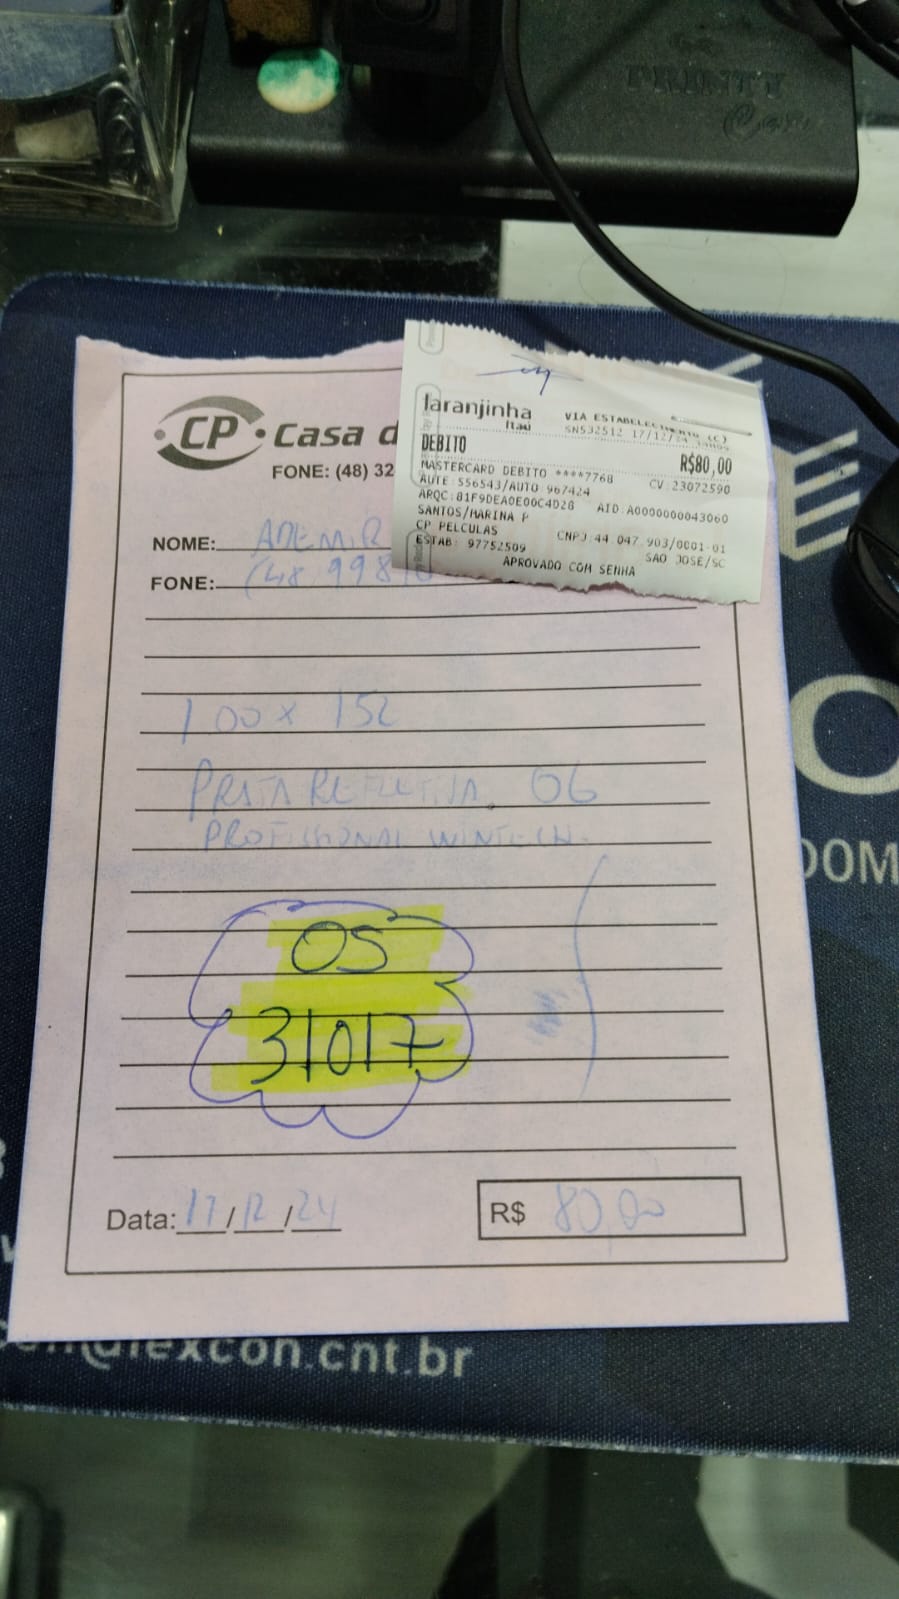 PRINTY
CP Casa d
FONE: (48) 32
laranjinha
Itaú
VIA ESTABELECIMENTO (C)
SN532512 17/12/24
DEBITO
R$80,00
MASTERCARD DEBITO ****7768
CV:23072590
AUTE:556543/AUTO 967424
ARQC:81F9DEA0E00C4D28 AID:A0000000043060
SANTOS/MARINA P
CP PELCULAS
CNPJ:44.047.903/0001-01
ESTAB: 97752509
SAO JOSE/SC
APROVADO COM SENHA
NOME: ADEMIR
FONE: (48 998
1 00 x 152
PRATA REFLETIVA 06
PROFISSIONAL WINTECH.
OS
31017
Data: 17/12/24
R$ 80,00
OOM
@lexcon.cnt.br